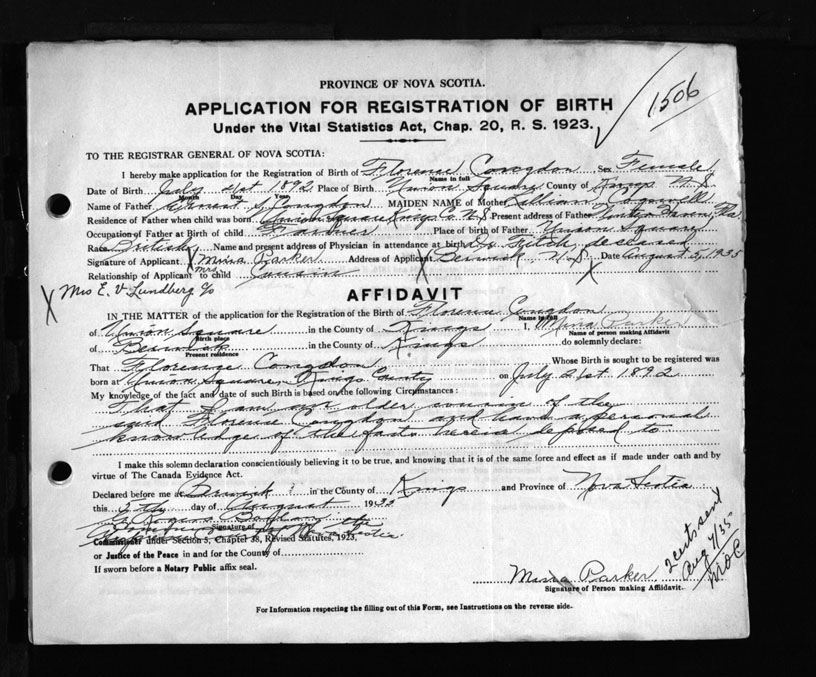 1506
PROVINCE OF NOVA SCOTIA.
APPLICATION FOR REGISTRATION OF BIRTH
Under the Vital Statistics Act, Chap. 20, R. S. 1923.
TO THE REGISTRAR GENERAL OF NOVA SCOTIA:
I hereby make application for the Registration of Birth of Florence Congdon Sex Female
Name in full
Date of Birth July 21st 1892 Place of Birth Union Square County of Kings N.S
Month Day Year
Name of Father Ernest S. Congdon MAIDEN NAME of Mother Lillian Cogswell
Residence of Father when child was born Union Square Kings Co N S Present address of Father
Occupation of Father at Birth of child Farmer Place of birth of Father Union Square
Race British Name and present address of Physician in attendance at birth Dr Fitch deceased
Signature of Applicant X Mina Parker Address of Applicant X Berwick N.S Date August 5, 1935
Mrs
Relationship of Applicant to child Cousin X
X Mrs E. V. Lundberg c/o
AFFIDAVIT
IN THE MATTER of the application for the Registration of the Birth of Florence Congdon
Name in full
of Union Square in the County of Kings I, Mina Parker
Birth place Name of person making Affidavit
of Berwick in the County of Kings do solemnly declare:
Present residence
That Florence Congdon Whose Birth is sought to be registered was
born at Union Square, Kings County on July 21st 1892
My knowledge of the fact and date of such Birth is based on the following Circumstances:
That I am an older cousin of the
said Florence Congdon and have a personal
knowledge of the facts herein deposed to
I make this solemn declaration conscientiously believing it to be true, and knowing that it is of the same force and effect as if made under oath and by
virtue of The Canada Evidence Act.
Declared before me at Berwick in the County of Kings and Province of Nova Scotia
this 5th day of August 1935
Signature of
Commissioner under Section 5, Chapter 38, Revised Statutes, 1923,
or Justice of the Peace in and for the County of
If sworn before a Notary Public affix seal.
Mina Parker
Signature of Person making Affidavit.
2 certs sent
Aug 7/35
For Information respecting the filling out of this Form, see Instructions on the reverse side.